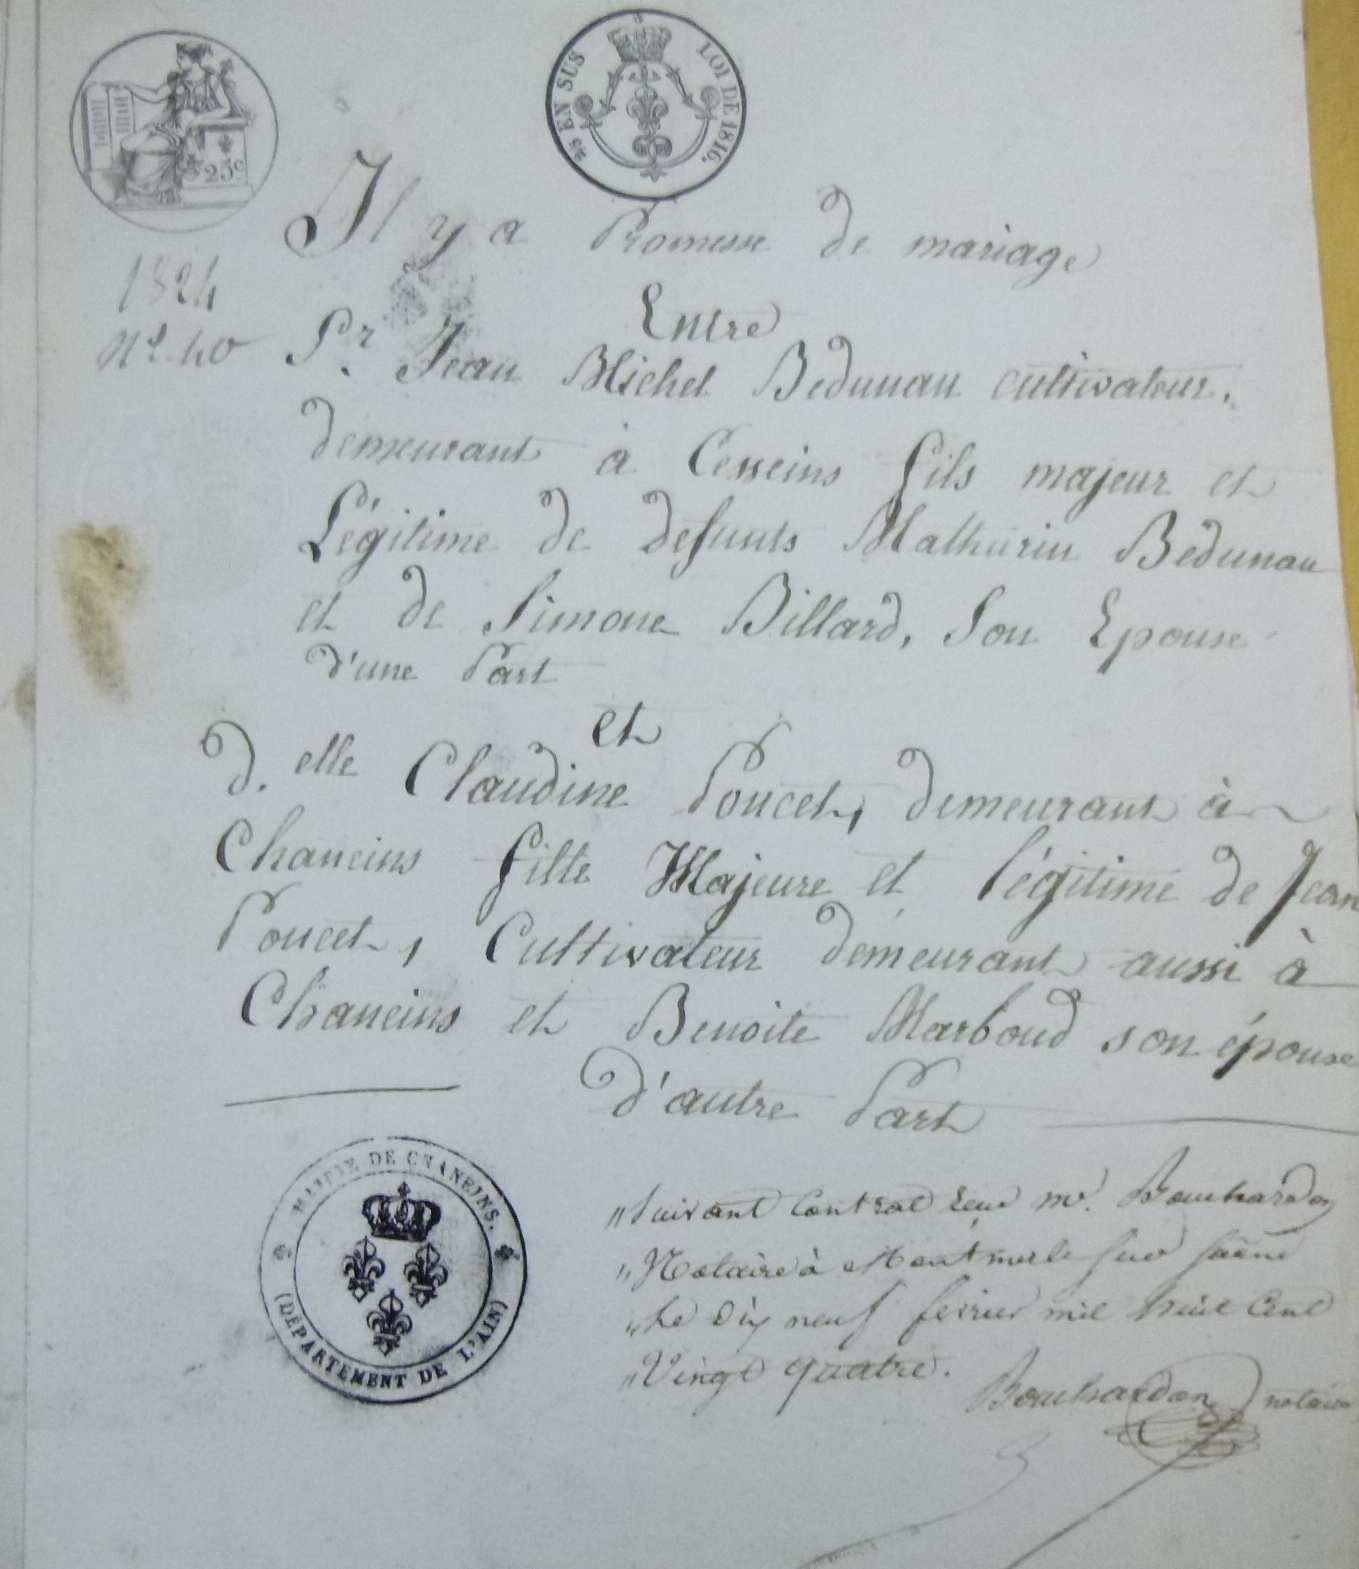 25c
25 EN SUS LOI DE 1816.
Il y a Promesse de mariage
1824
Entre
No. 40
Sr. Jean Michel Bedunau cultivateur,
demeurant à Cesseins fils majeur et
Légitime de defunts Mathurin Bedunau
et de Simone Billard, Son Epouse
d'une Part
et
d.elle Claudine Poncet, demeurant à
Chaneins fille Majeure et légitime de Jean
Poncet, Cultivateur demeurant aussi à
Chaneins et Benoite Marboud son épouse
d'autre Part
MAIRIE DE CHANEINS.
(DÉPARTEMENT DE L'AIN)
"Suivant Contrat Reçu mr. Bouchardon
"Notaire à Montmerle sur Saône
"Le dix neuf fevrier mil huit Cent
"Vingt quatre.
Bouchardon notaire